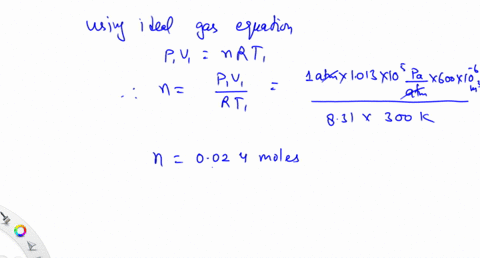 using ideal gas equation
P₁V₁ = nRT₁
∴ n = P₁V₁ / RT₁ = 1 atm × 1.013 × 10⁵ Pa/atm × 600 × 10⁻⁶ m³ / 8.31 × 300 K
n = 0.024 moles